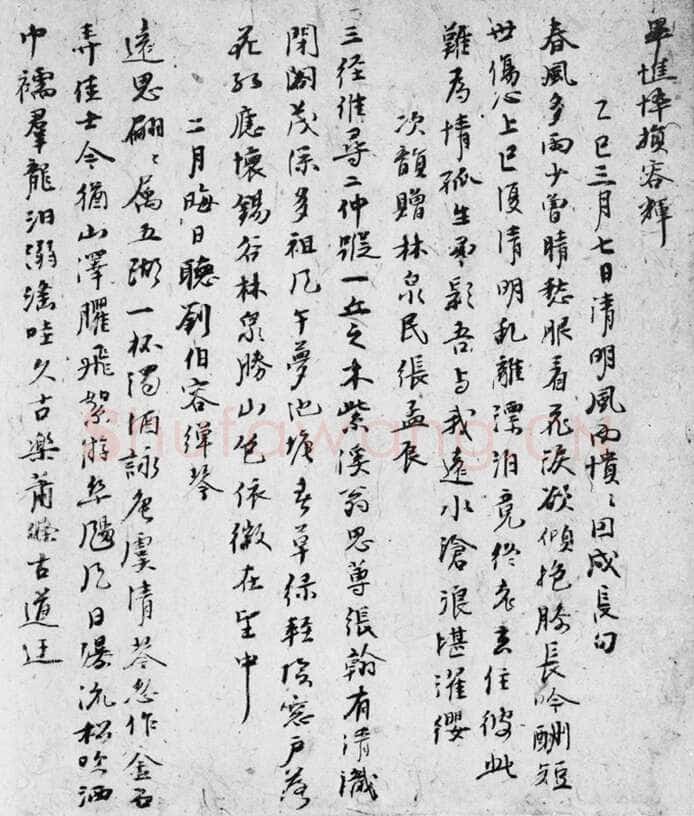 單憔悴損容輝
乙巳三月七日清明風雨憒〻因成長句
春風多雨少曾晴愁眼看花淚欲傾抱膝長吟酬短
世傷心上巳復清明亂離漂泊竟終老去住彼此
難為情孤生弔影吾與我遠水滄浪堪濯纓
次韻贈林泉民張孟辰
三徑唯尋二仲蹤一丘之木紫溪翁思尊張翰有清識
閉閣茂深多祖凡午夢池塘春草綠輕陰窗戶落
花紅應懷錫谷林泉勝山色依微在望中
二月晦日聽劉伯容彈琴
遠思翩〻屬五湖一杯濁酒詠唐虞清琴忽作金石
弄佳士今猶山澤臞飛絮游絲颺風日瀑流松吹洒
巾襦羣龍汩溺滛哇久古樂蕭條古道迂
Shufawang.CN